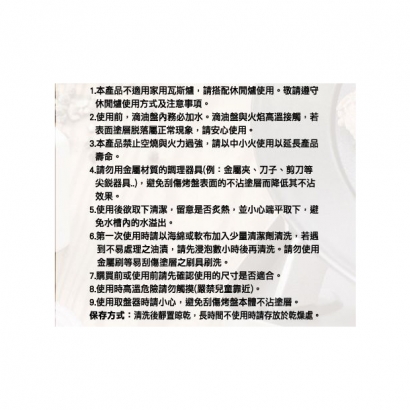 1.本產品不適用家用瓦斯爐，請搭配休閒爐使用。敬請遵守
休閒爐使用方式及注意事項。
2.使用前，滴油盤內務必加水。滴油盤與火焰高溫接觸，若
表面塗層脱落屬正常現象，請安心使用。
3.本產品禁止空燒與火力過強，請以中小火使用以延長產品
壽命。
4.請勿用金屬材質的調理器具(例：金屬夾、刀子、剪刀等
尖銳器具..)，避免刮傷烤盤表面的不沾塗層而降低其不沾
效果。
5.使用後欲取下清潔，留意是否炙熱，並小心端平取下，避
免水槽內的水溢出。
6.第一次使用時請以海綿或軟布加入少量清潔劑清洗，若遇
到不易處理之油漬，請先浸泡數小時後再清洗。請勿使用
金屬刷等易刮傷塗層之刷具刷洗。
7.購買前或使用前請先確認使用的尺寸是否適合。
8.使用時高溫危險請勿觸摸(嚴禁兒童靠近)。
9.使用取盤器時請小心，避免刮傷烤盤本體不沾塗層。
保存方式：清洗後靜置晾乾，長時間不使用時請存放於乾燥處。